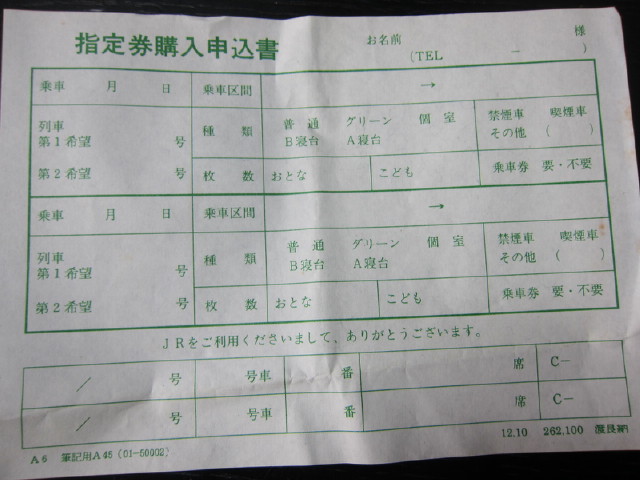 指定券購入申込書 お名前 様
(TEL － )
乗車 月 日 乗車区間 →
列車 種類 普通 グリーン 個室 禁煙車 喫煙車
第1希望 号 B寝台 A寝台 その他 ( )
第2希望 号 枚数 おとな こども 乗車券 要・不要
乗車 月 日 乗車区間 →
列車 種類 普通 グリーン 個室 禁煙車 喫煙車
第1希望 号 B寝台 A寝台 その他 ( )
第2希望 号 枚数 おとな こども 乗車券 要・不要
JRをご利用くださいまして、ありがとうございます。
／ 号 号車 番 席 C－
／ 号 号車 番 席 C－
A6 筆記用A45 (01-50002) 12.10 262.100